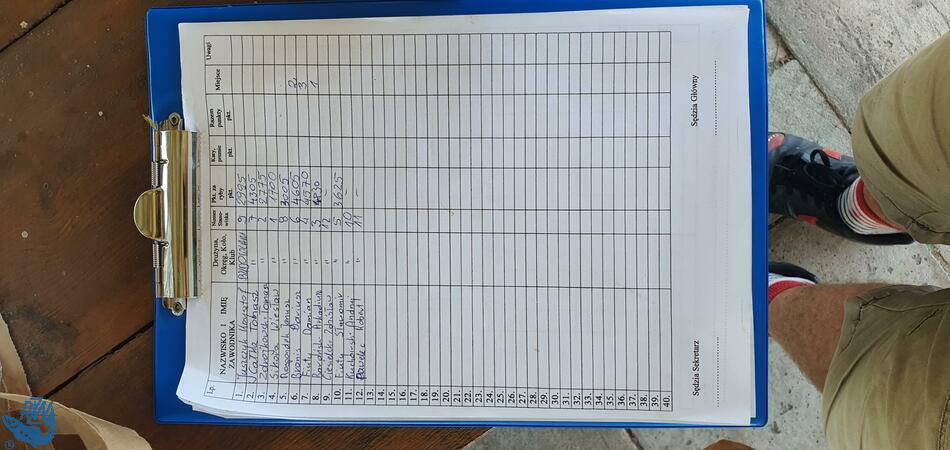 Lp. NAZWISKO I IMIĘ ZAWODNIKA Drużyna, Okręg, Koło, Klub Numer Stano- wiska Pkt. za ryby pkt. Kary, premie pkt. Razem punkty pkt. Miejsce Uwagi
1. 9 2995
2. Tomasz " 7 4305
3. Tomasz " 2 2775
4. Sikora Wiesław " 1 1700
5. Respondek Janusz " 8 3005
6. Bronis Dariusz " 6 4605 2
7. Furty Damian " 4 4570 3
8. Arkadiusz " 3 1
9. Ciesielski Zdzisław " 12 -
10. Furty Sławomir " 5 3625
11. Andrzej " 10 -
12. Robert " 11 -
13.
14.
15.
16.
17.
18.
19.
20.
21.
22.
23.
24.
25.
26.
27.
28.
29.
30.
31.
32.
33.
34.
35.
36.
37.
38.
39.
40.
Sędzia Sekretarz Sędzia Główny